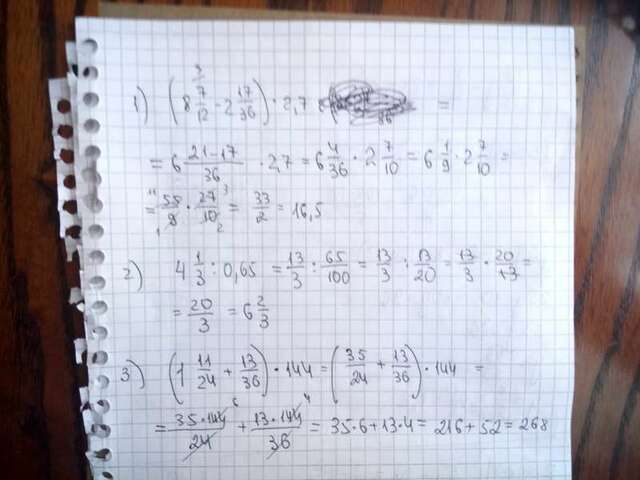 1) (8 7/12 - 2 17/36) · 2,7 =
= 6 (21-17)/36 · 2,7 = 6 4/36 · 2 7/10 = 6 1/9 · 2 7/10 =
= 55/9 · 27/10 = 33/2 = 16,5
2) 4 1/3 : 0,65 = 13/3 : 65/100 = 13/3 : 13/20 = 13/3 · 20/13 =
= 20/3 = 6 2/3
3) (1 11/24 + 13/36) · 144 = (35/24 + 13/36) · 144 =
= 35·144/24 + 13·144/36 = 35·6+13·4 = 216+52 = 268